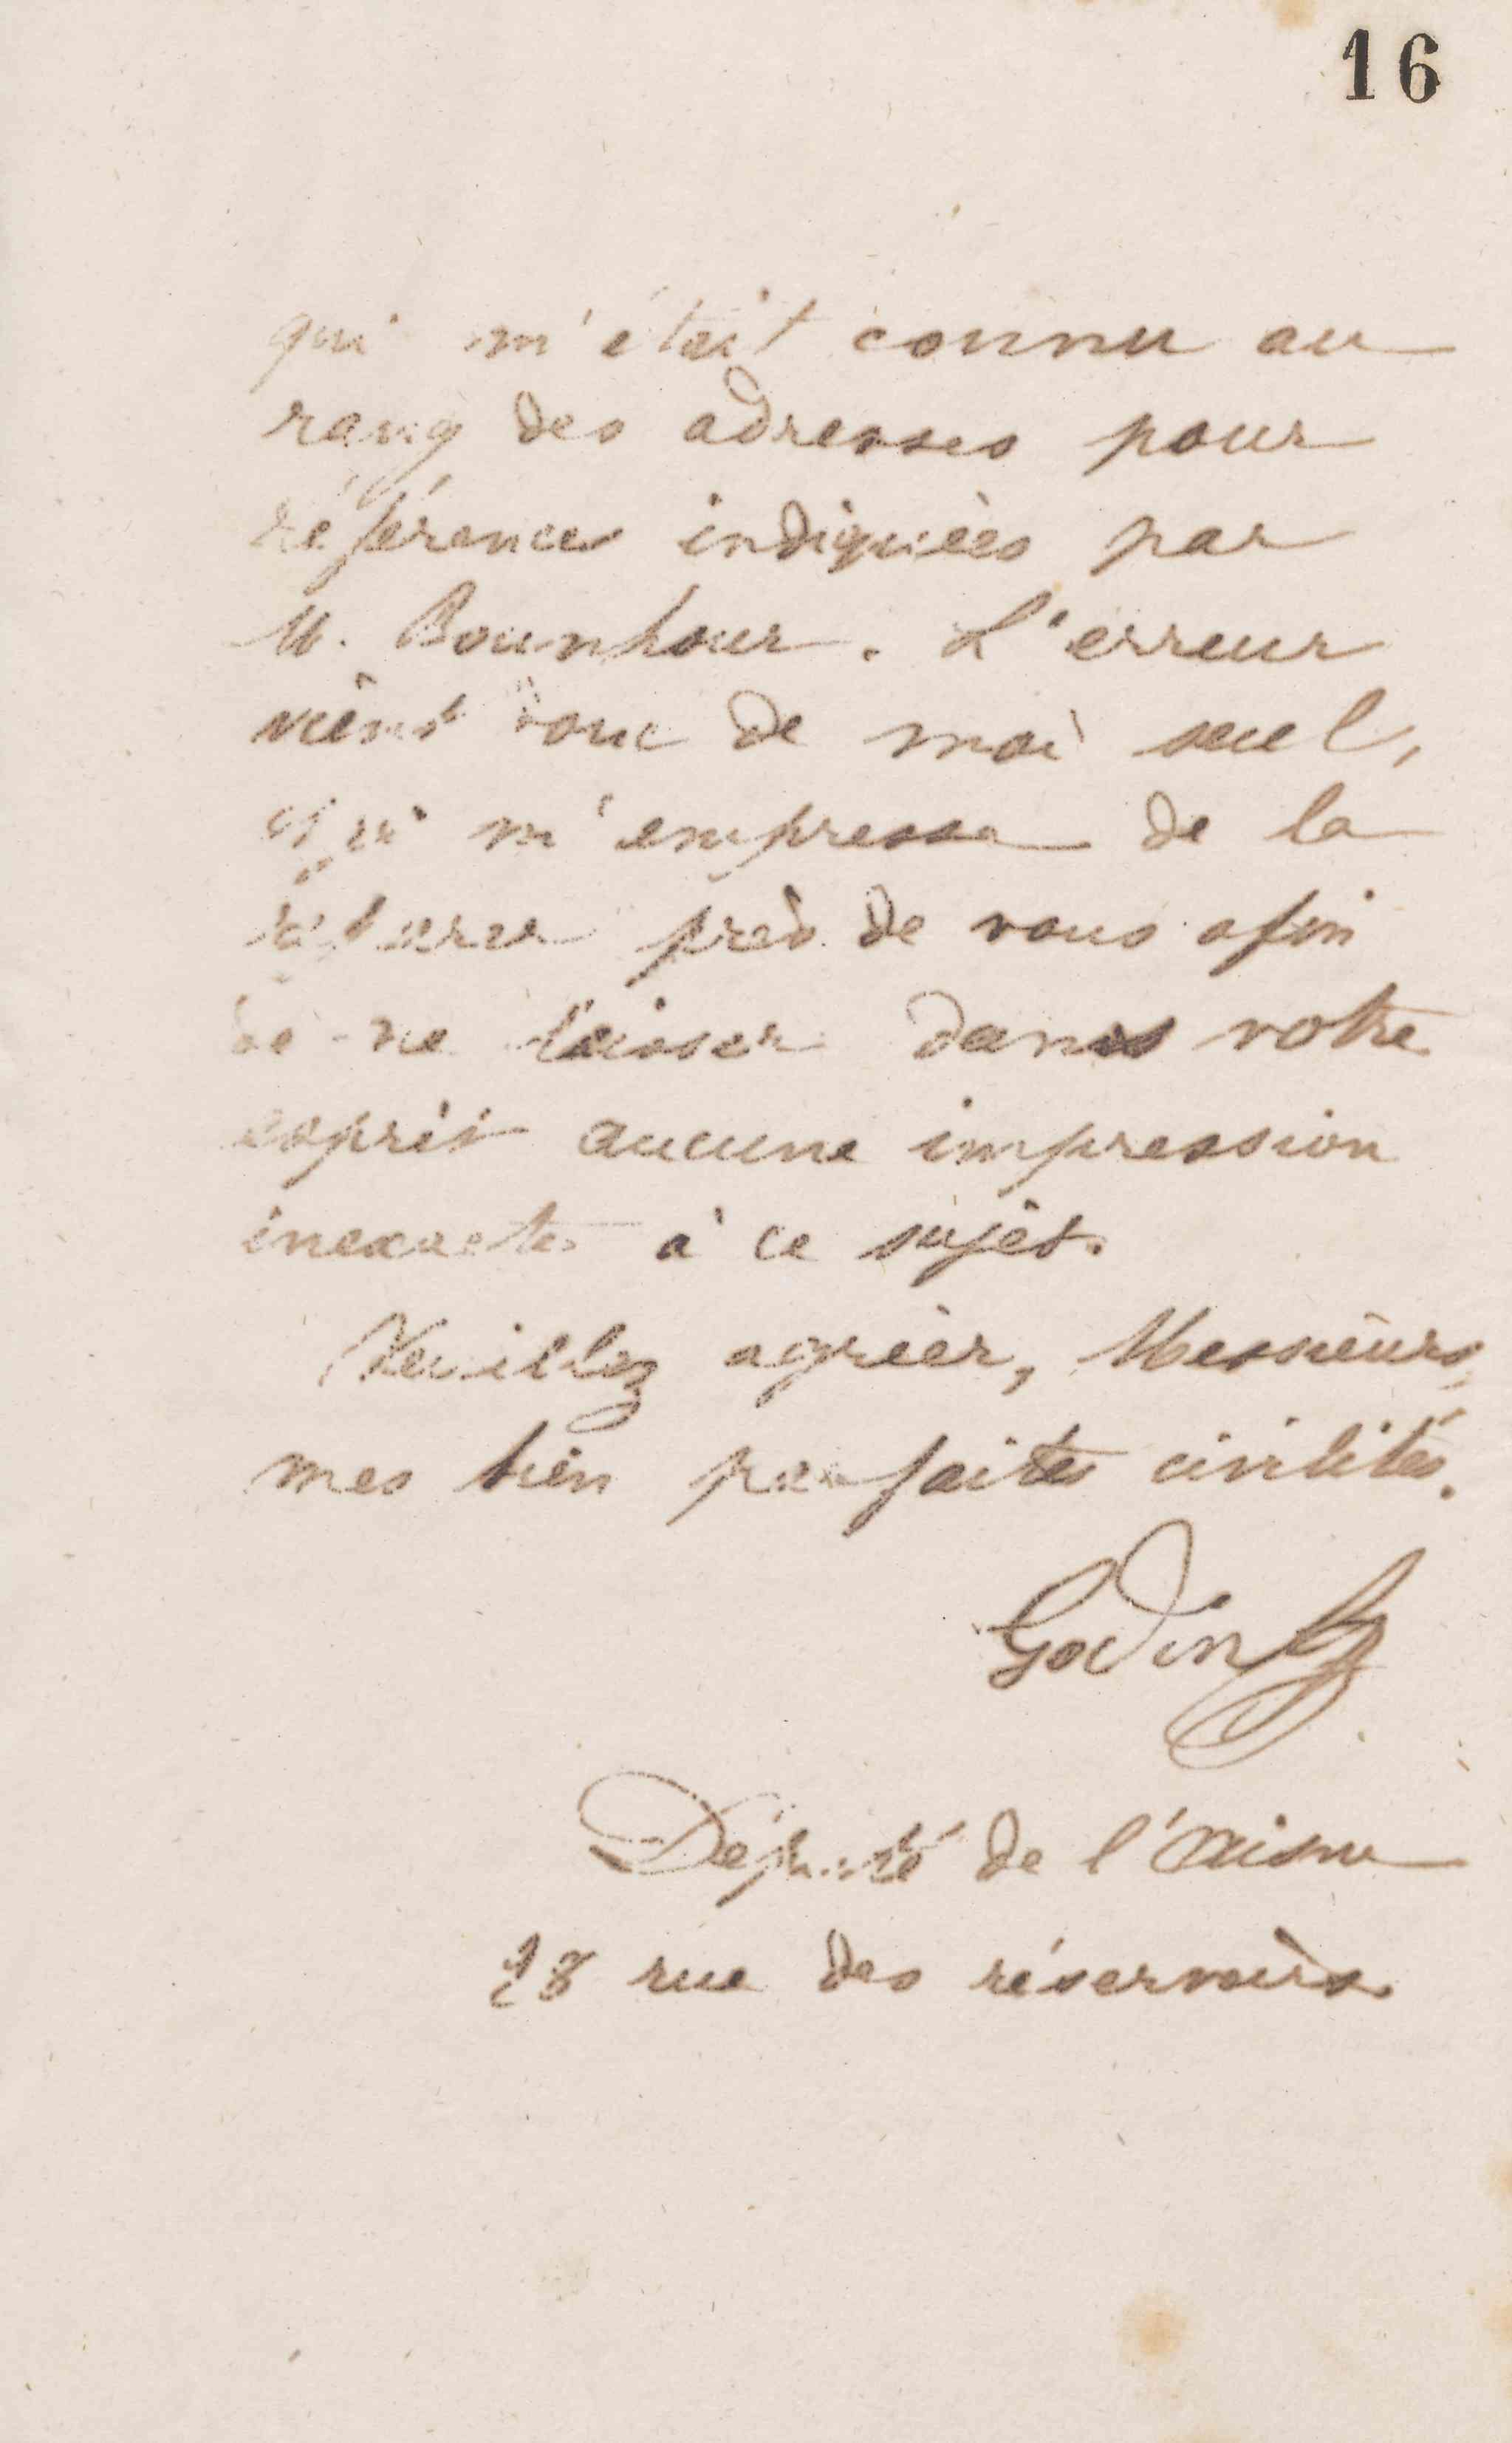 16
qui m'était connu au
rang des adresses pour
références indiquées par
M. Bounhour. L'erreur
vient donc de moi seul,
et je m'empresse de la
près de vous afin
de ne laisser dans votre
esprit aucune impression
inexacte à ce sujet.
Veuillez agréer, Messieurs,
mes bien parfaites civilités.
Godin
Député de l'Aisne
28 rue des réservoirs